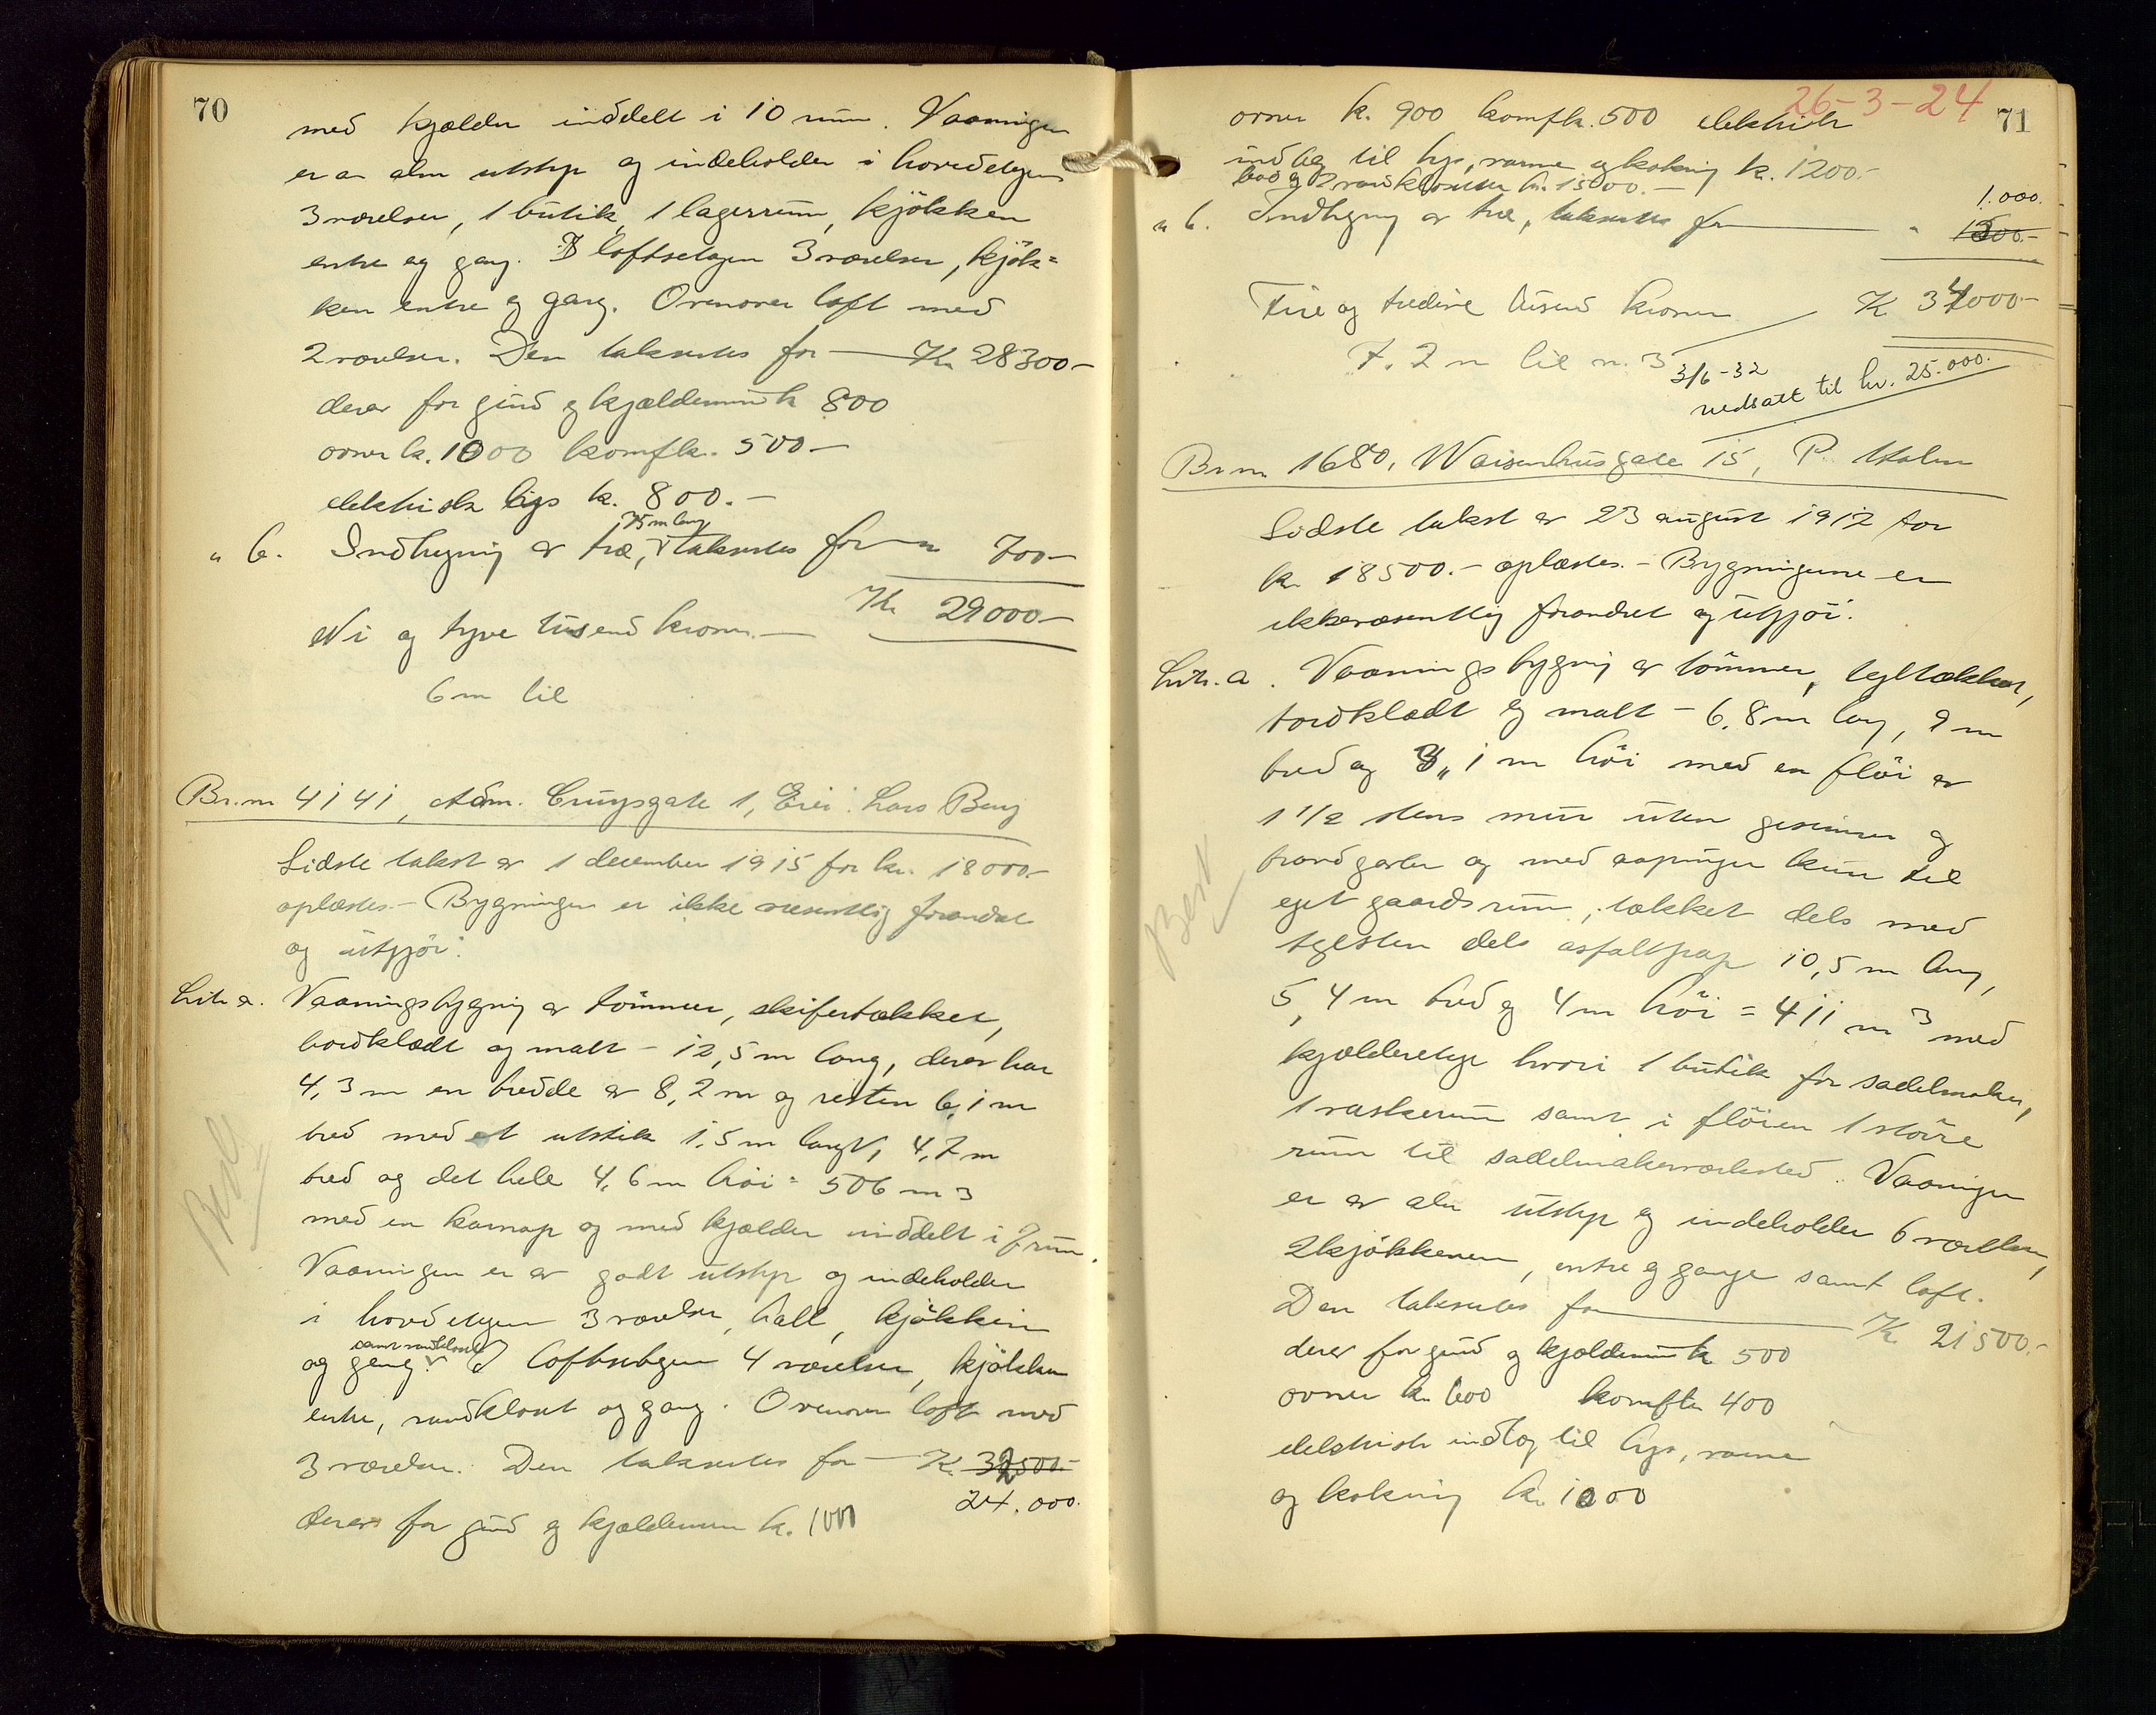 70
med kjælder inddelt i 10 rum. Vaaningen
er av alm utstyr og indeholder i hovedetagen
3 værelser, 1 butik, 1 lagerrum, kjökken
entre og gang. I loftsetagen 3 værelser, kjök=
ken entre og gang. Ovenover loft med
2 værelser. Den takseres for Kr. 28300-
derav for grund og kjældermur kr 800
ovner kr. 1000 komf kr. 500-
elektrisk lys kr. 800.-
75 m lang
" b. Indhegning av træ, takseres for " 700-
Kr 29000-
Ni og tyve tusend kroner.-
6 m til
Br.nr 4141, Adm. Cruysgate 1, Eier: Lars Berg
Sidste takst av 1 december 1915 for kr. 18000.-
oplæstes.- Bygningen er ikke væsentlig forandret
og utgjör:
Lit. a. Vaaningsbygning av tömmer, skifertækket,
bordklædt og malt - 12,5 m lang, derav har
4,3 m en bredde av 8,2 m og resten 6,1 m
bred med et utstik 1,5 m langt, 4,7 m
bred og det hele 4,6 m höi = 506 m3
med en karnap og med kjælder inddelt i 7 rum.
Vaaningen er av godt utstyr og indeholder
i hovedetagen 3 værelser, hall, kjökken
samt vandklosett
og gang. I loftsetagen 4 værelser, kjökken
entre, vandkloset og gang. Ovenover loft med
3 værelser. Den takseres for Kr. 32500.-
24.000.
derav for grund og kjældermur kr. 1000
26-3-24
71
ovner kr. 900 komf kr. 500 elektrisk
indlæg til lys, varme og kokning kr. 1200.-
bad og 2 vandklosetter kr. 1500.-
1.000.
" b. Indhegning av træ, takseres for " 1500.-
Fire og tredive tusend kroner Kr 34000-
7.2 m til n. 3
3/6-32
nedsatt til kr. 25.000.
Br.nr 1680, Waisenhusgate 15, P. Holm
Sidste takst av 23 august 1912 for
kr. 18500.- oplæstes. - Bygningerne er
ikke væsentlig forandret og utgjör:
Lit. a. Vaaningsbygning av tömmer, tegltækket,
bordklædt og malt - 6,8 m lang, 9 m
bred og 8,1 m höi med en flöi av
1 1/2 stens mur uten gesimser og
brandgavler og med aapninger kun til
eget gaardsrum, tækket dels med
tglsten dels asfaltpap 10,5 m lang,
5,4 m bred og 4 m höi = 411 m3 med
kjælderetage hvori 1 butik for sadelmaker,
1 vaskerum samt i flöien 1 större
rum til sadelmakerverksted. Vaaningen
er av alm utstyr og indeholder 6 værelser,
2 kjökkener, entre og gange samt loft.
Den takseres for Kr 21500.-
derav for grund og kjældermur kr 500
ovner kr. 600 komf kr 400
elektrisk indlæg til lys, varme
og kokning kr. 1000